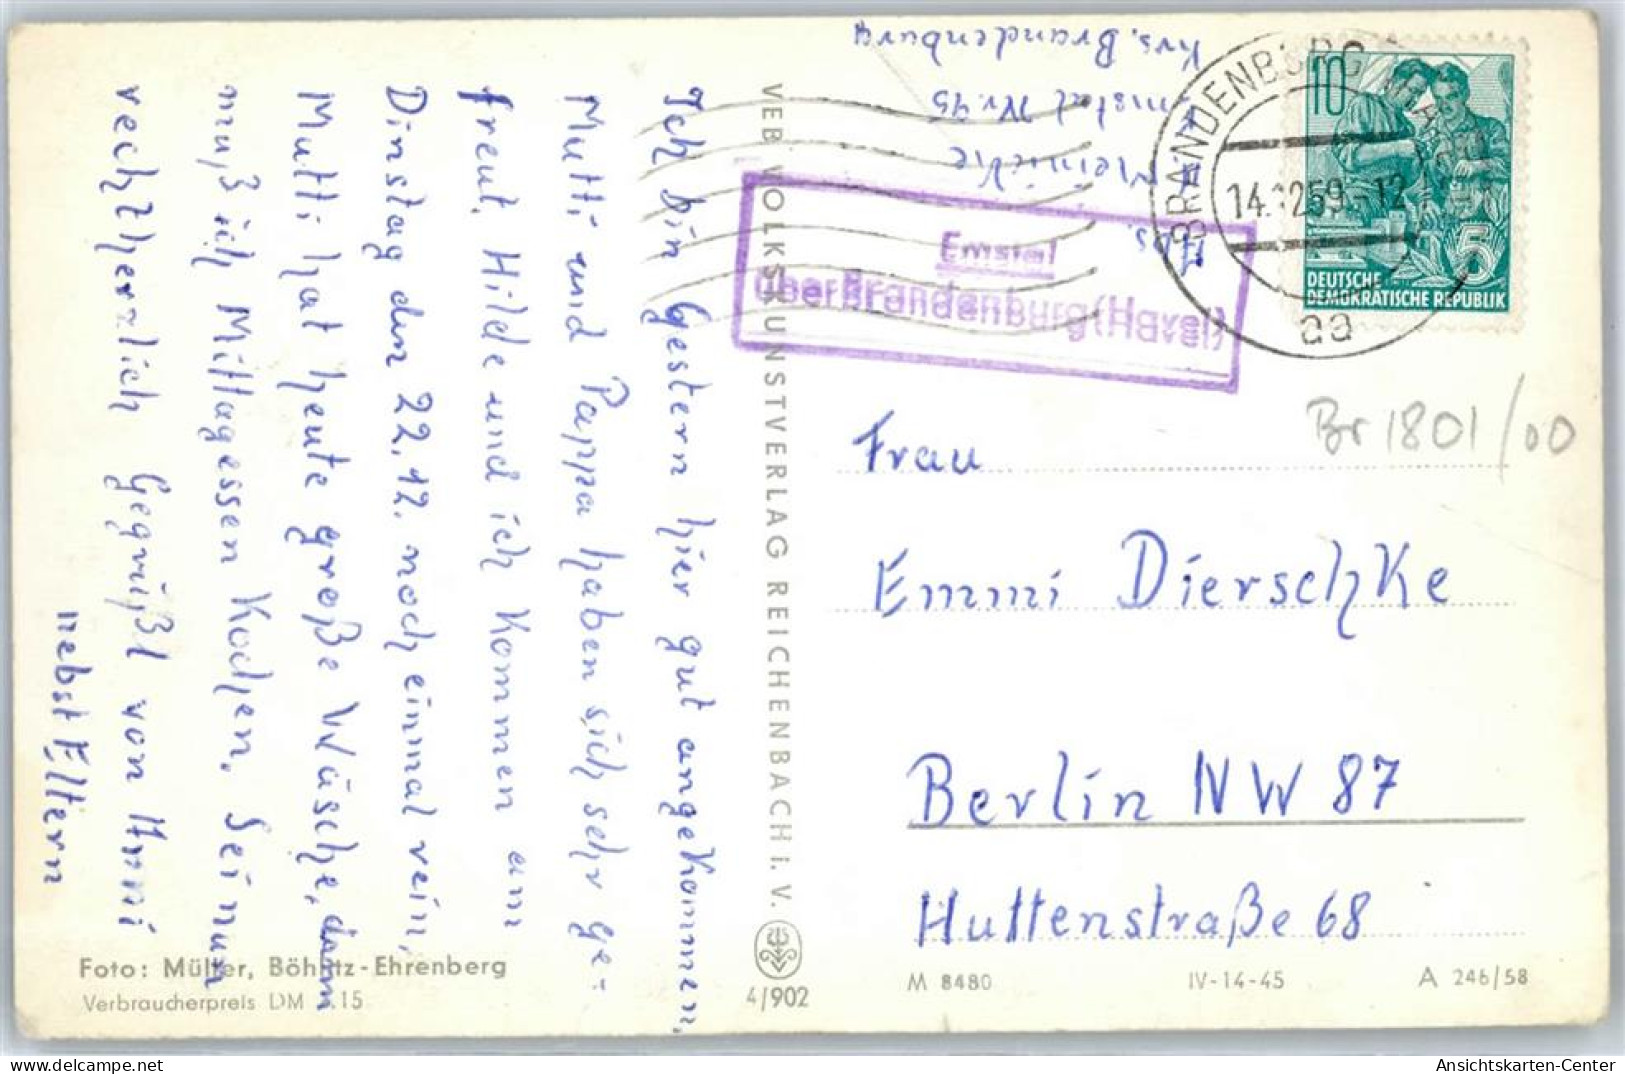 Ich bin Gestern hier gut angekommen,
Mutti und Pappa haben sich sehr ge=
freut. Hilde und ich kommen am
Dinstag den 22.12. noch einmal rein,
Mutti hat heute große Wäsche, dann
muß ich Mittagessen kochen. Sei nun
recht herzlich Gegrüßt von Anni
nebst Eltern
Foto: Müller, Böhlitz-Ehrenberg
Verbraucherpreis DM 0.15
VEB VOLKSKUNSTVERLAG REICHENBACH I. V.
4/902
Abs.
Reinicke
Emstal Nr. 45
Krs. Brandenburg
Emstal
über Brandenburg (Havel)
BRANDENBURG (HAVEL)
14.12.59.-12
aa
10
5
DEUTSCHE
DEMOKRATISCHE REPUBLIK
Br 1801/00
Frau
Emmi Dierschke
Berlin NW 87
Huttenstraße 68
M 8480 IV-14-45 A 246/58
Ansichtskarten-Center